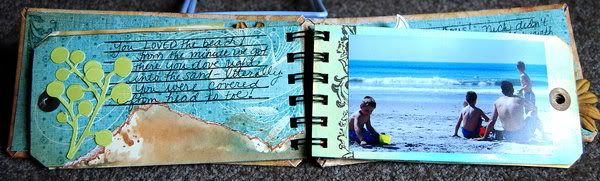 You LOVED the beach
from the minute we got
there you dove right
into the sand - literally
You were covered
from head to toe.
didn't